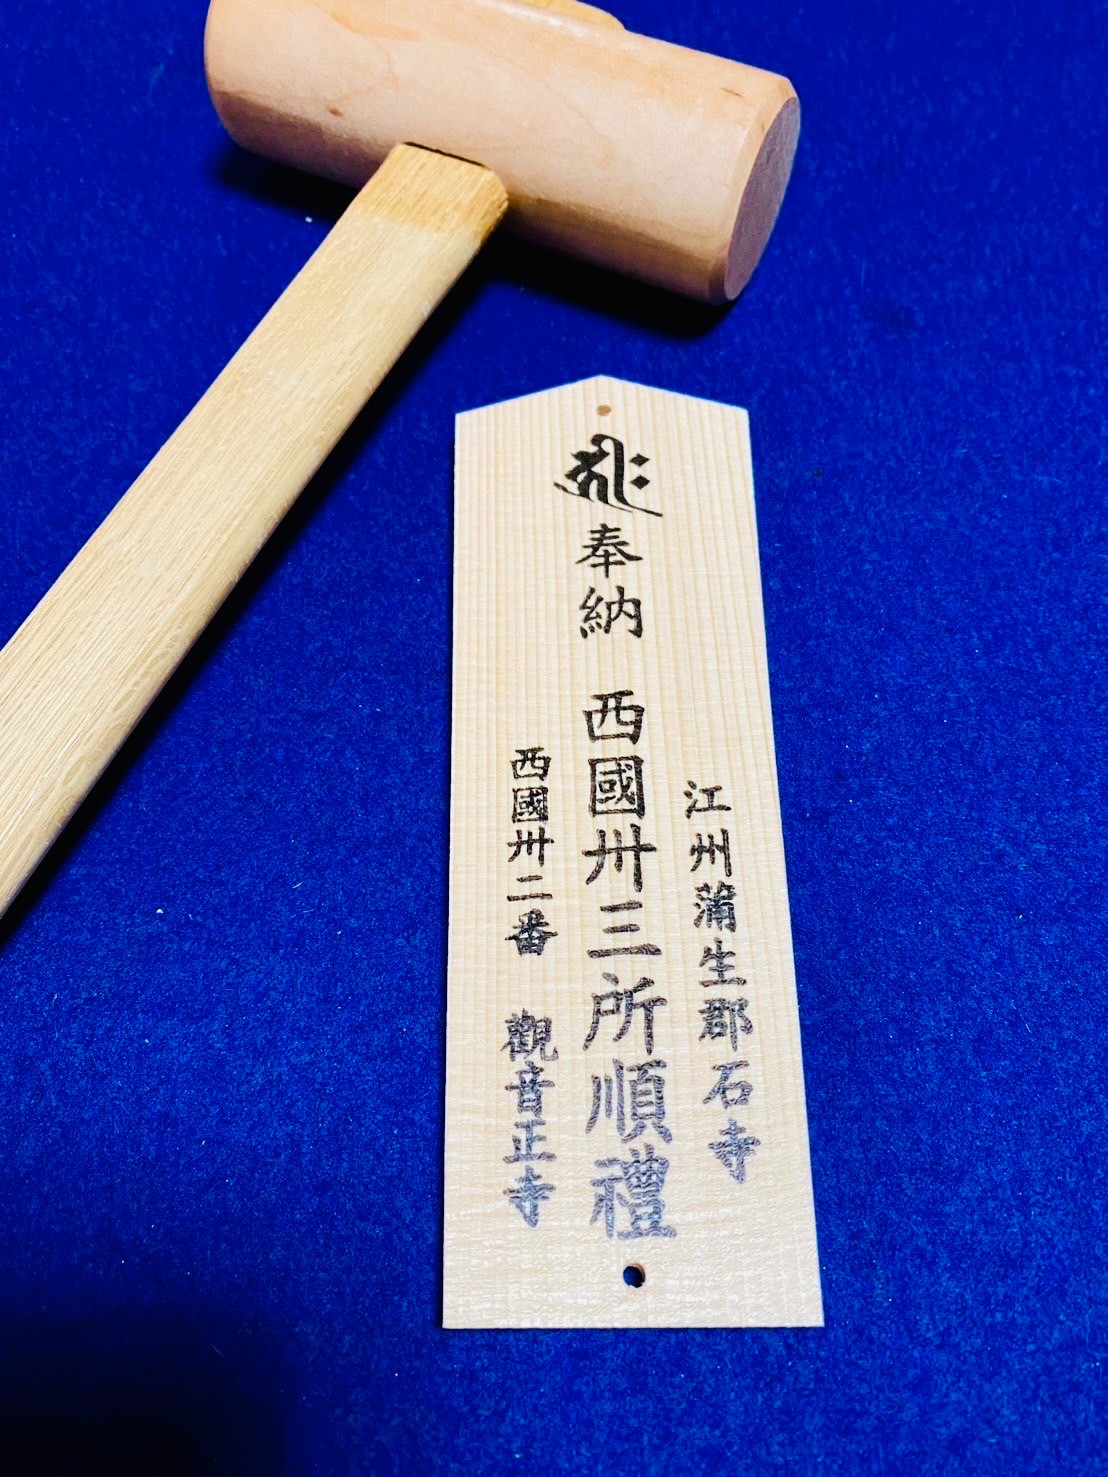 江州蒲生郡石寺
𑖮𑖿𑖨𑖱𑖾奉納 西國卅三所順禮
西國卅二番 觀音正寺